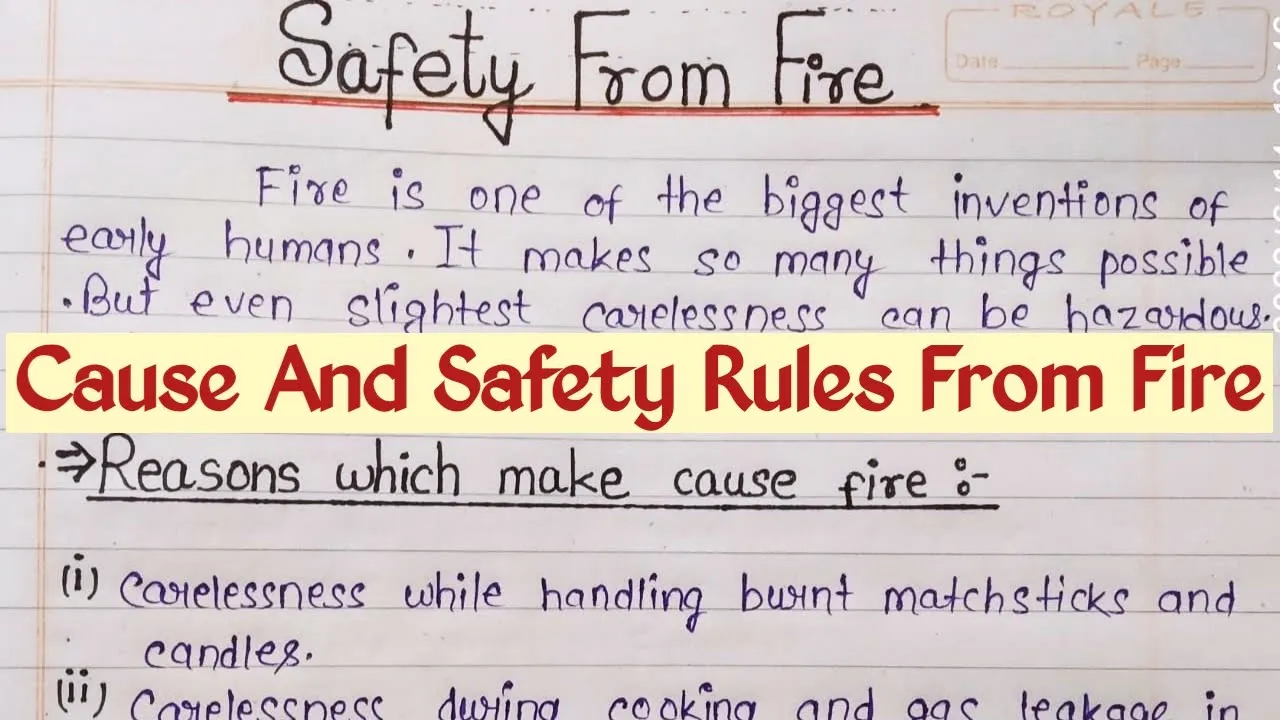 ROYALE
Safety From Fire
Date Page
Fire is one of the biggest inventions of
early humans. It makes so many things possible
. But even slightest carelessness can be hazardous.
Cause And Safety Rules From Fire
⇒ Reasons which make cause fire :-
(i) Carelessness while handling burnt matchsticks and
candles.
(ii) Carelessness during cooking and gas leakage in